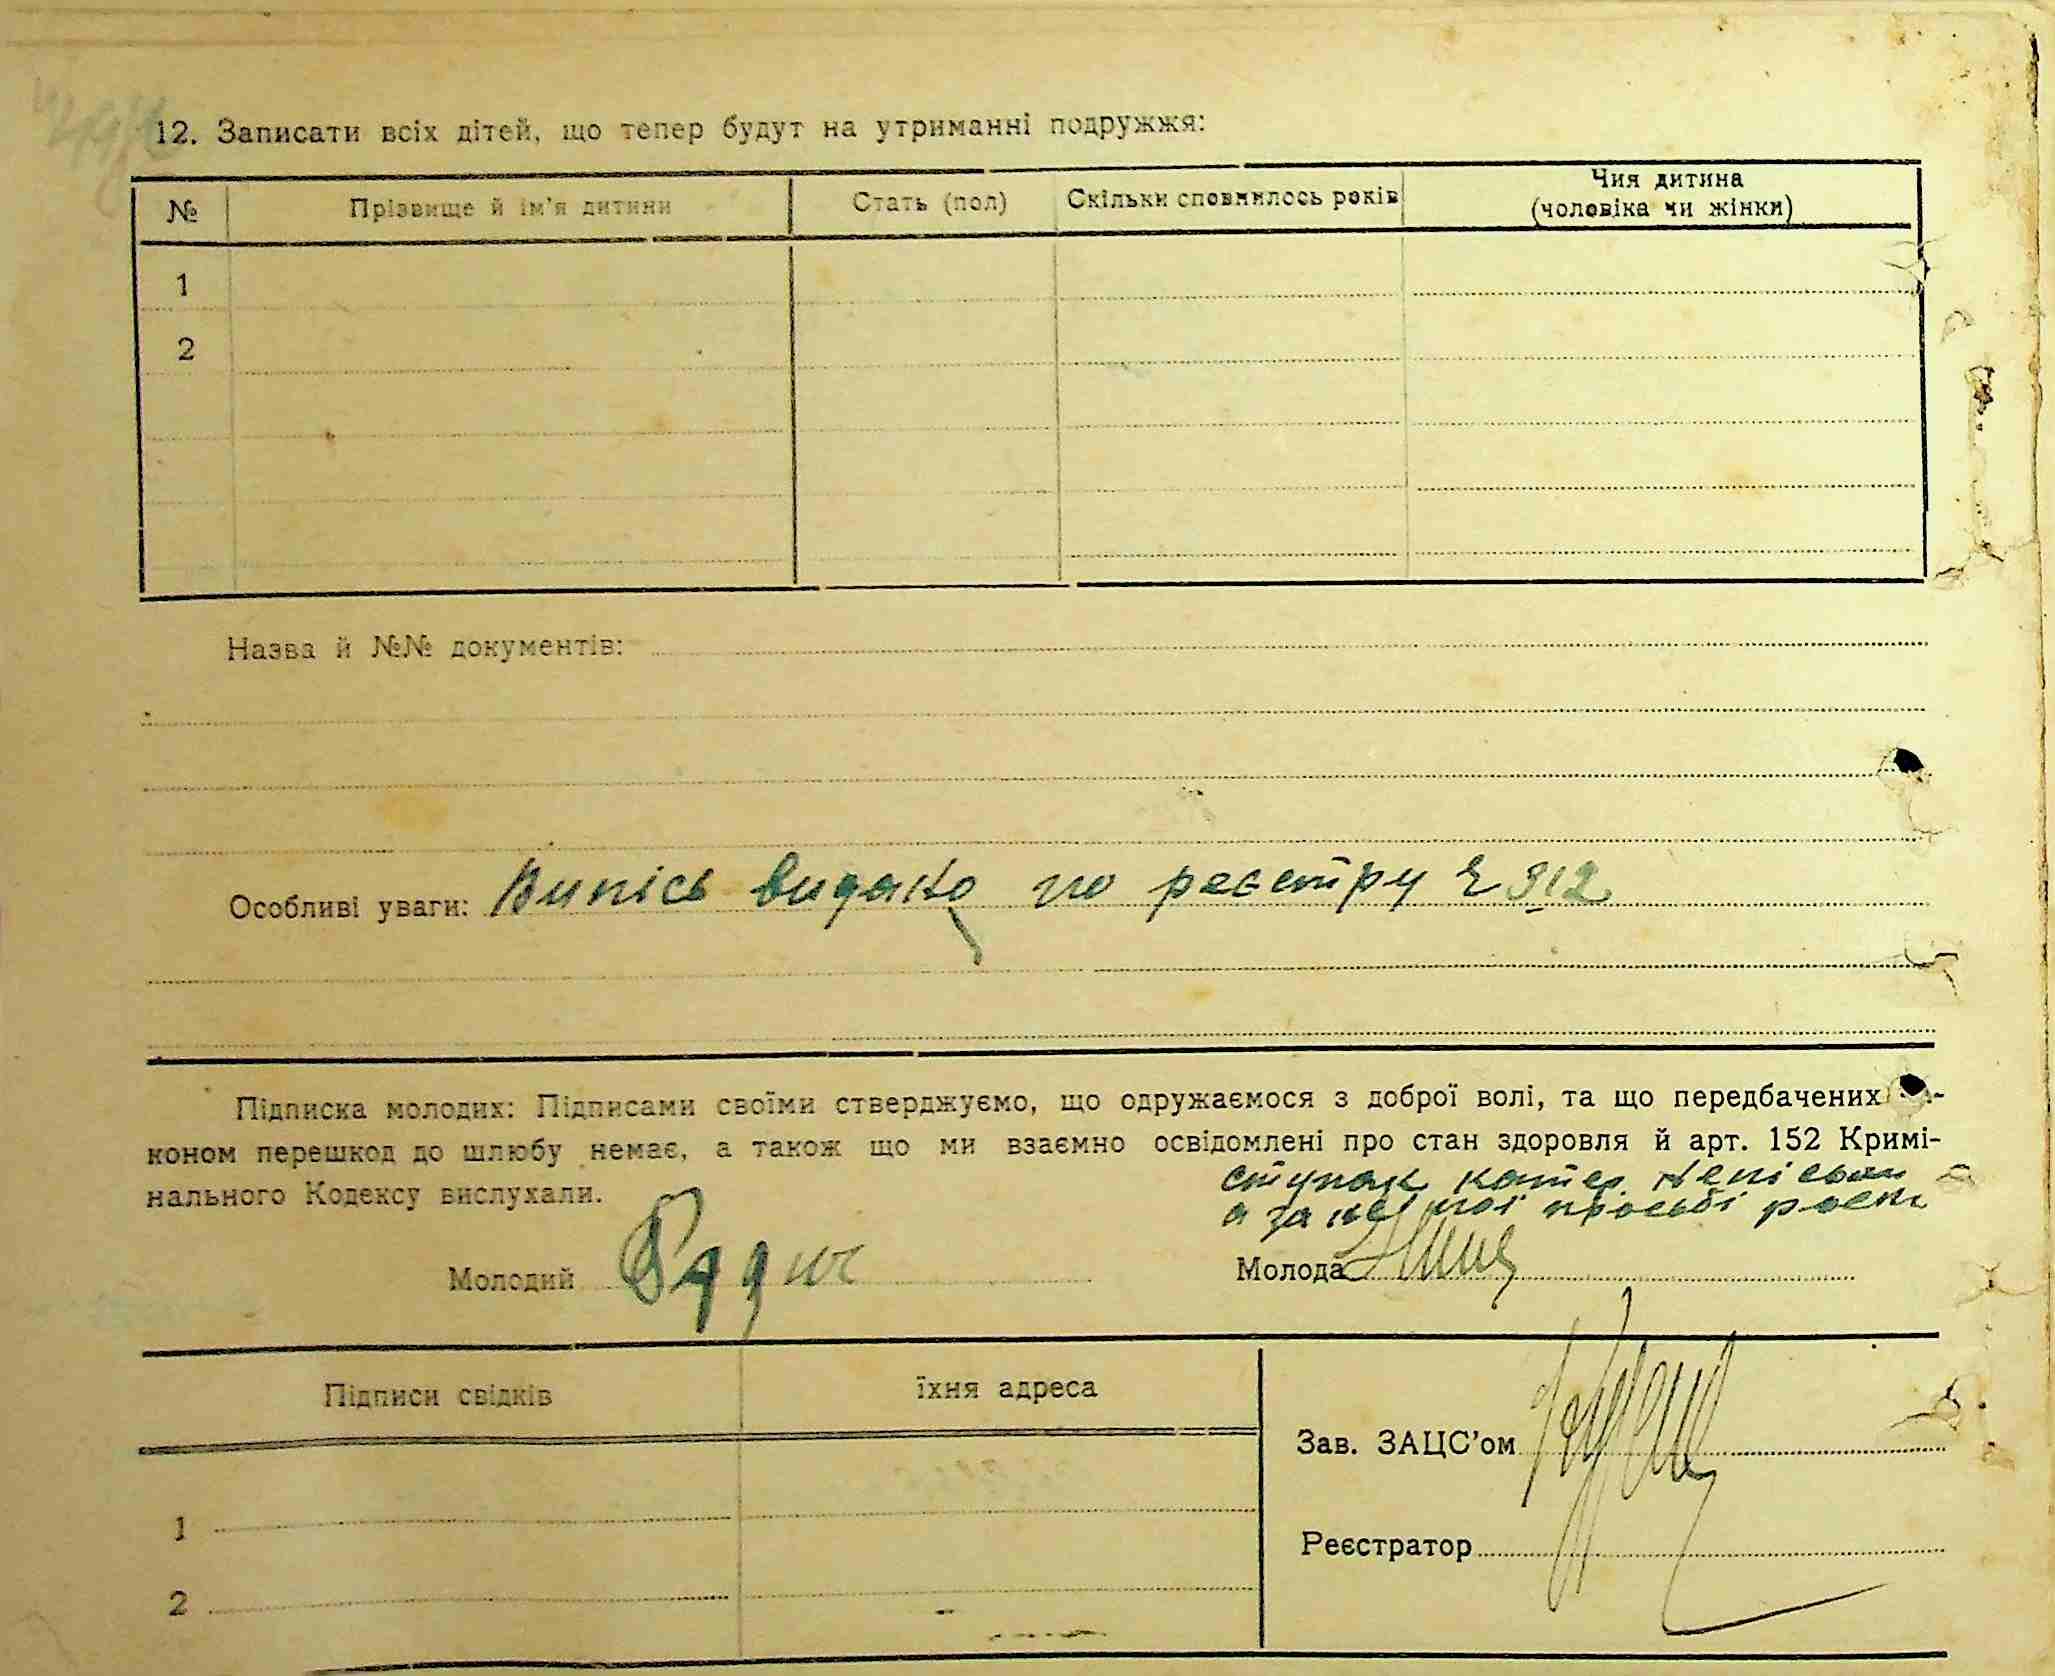 12. Записати всіх дітей, що тепер будут на утриманні подружжя:
№ Прізвище й ім'я дитини Стать (пол) Скільки сповнилось років Чия дитина
(чоловіка чи жінки)
1
2
Назва й №№ документів:
Особливі уваги: Випісь видано по реєстру № 912
Підписка молодих: Підписами своїми стверджуємо, що одружаємося з доброї волі, та що передбачених
коном перешкод до шлюбу немає, а також що ми взаємно освідомлені про стан здоровля й арт. 152 Кримі-
нального Кодексу вислухали.
ступак
а за
Молодий Молода
Підписи свідків їхня адреса
Зав. ЗАЦС'ом
1
Реєстратор
2